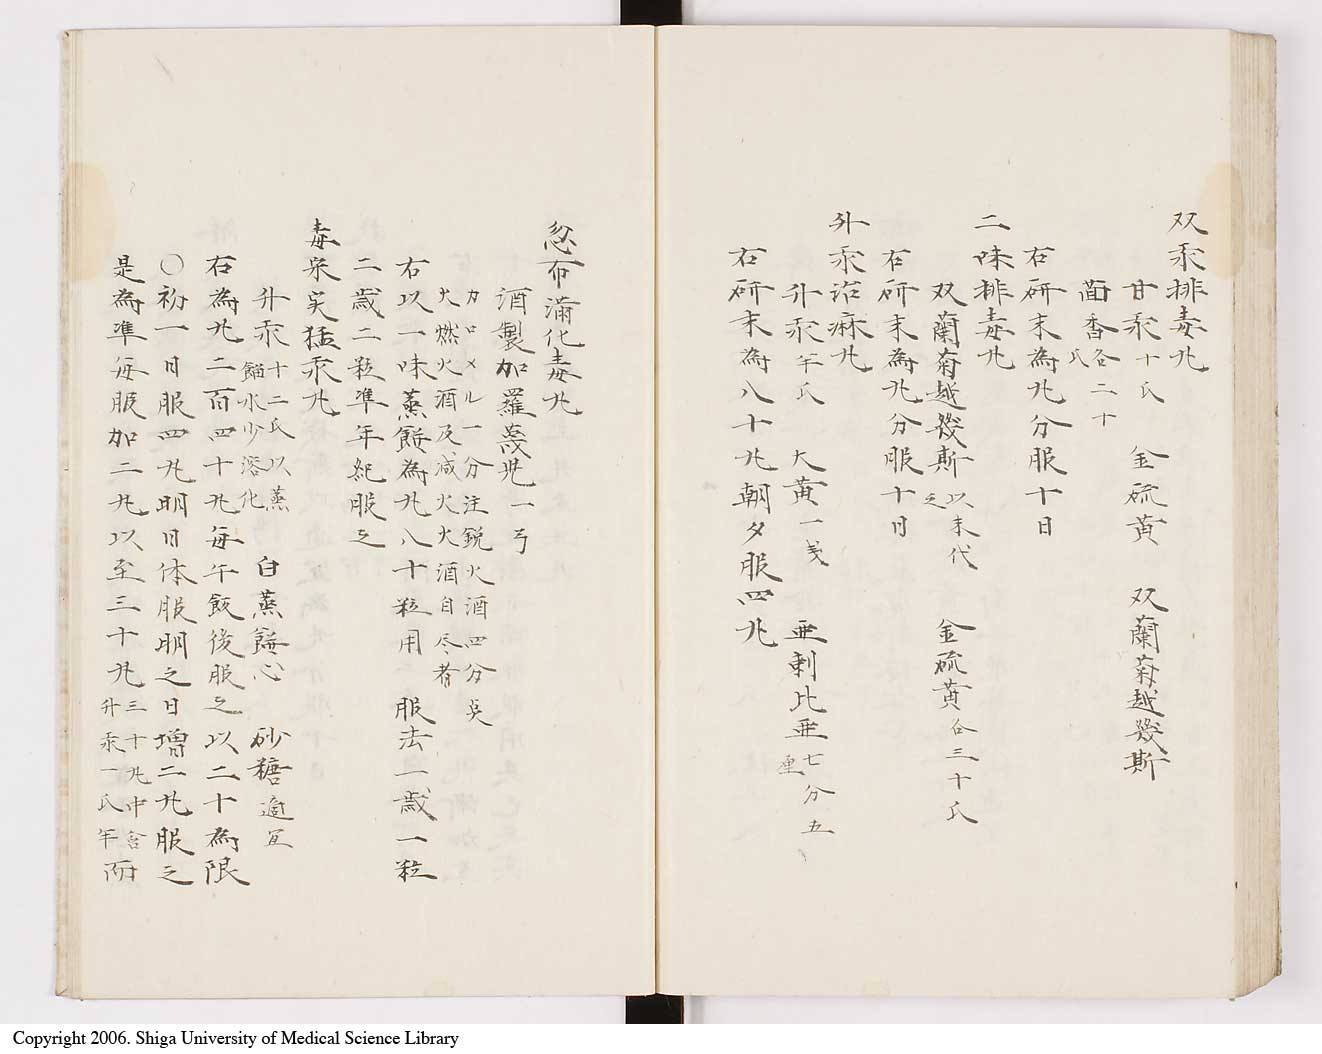 双汞排毒丸
甘汞十氏　金硫黄　双蘭菊越幾斯
茴香各二十氏
右研末為丸分服十日
二味排毒丸
双蘭菊越幾斯以末代之　金硫黄各三十氏
右研末為丸分服十日
升汞治麻丸
升汞半氏　大黄一戔　亜剌比亜七分五厘
右研末為八十丸朝夕服四丸
忽布満化毒丸
酒製加羅蔑児一号
カロメル一分注鋭火酒四分奌
火燃火酒及減火火酒自尽者
右以一味蒸餅為丸八十粒用　服法一歳一粒
二歳二粒準年紀服之
毒泉実猛汞丸
升汞十二氏以蒸餾水少溶化　白蒸餅心　砂糖適宜
右為丸二百四十丸毎午飯後服之以二十為限
〇初一日服四丸明日休服明之日増二丸服之
是為準毎服加二丸以至三十丸三十丸中含升汞一氏半而
Copyright 2006. Shiga University of Medical Science Library